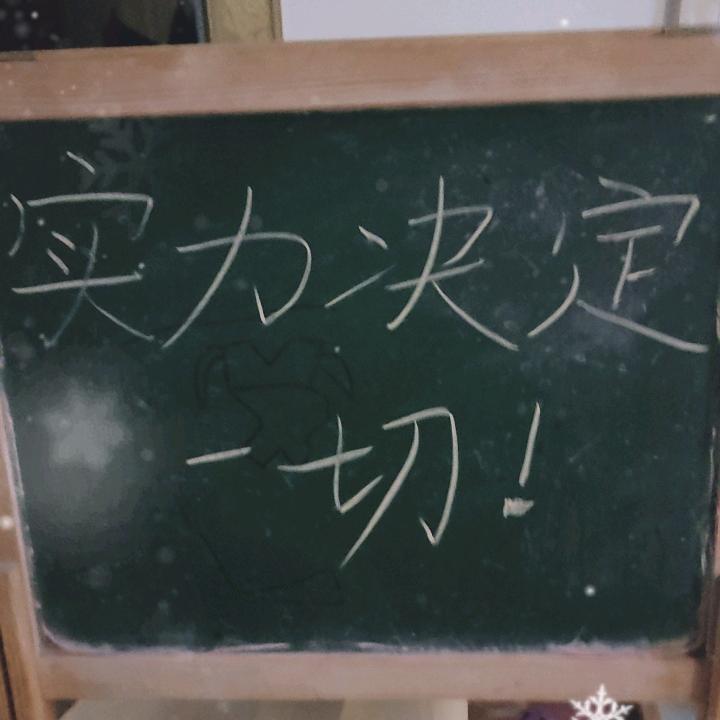 实力决定
一切!